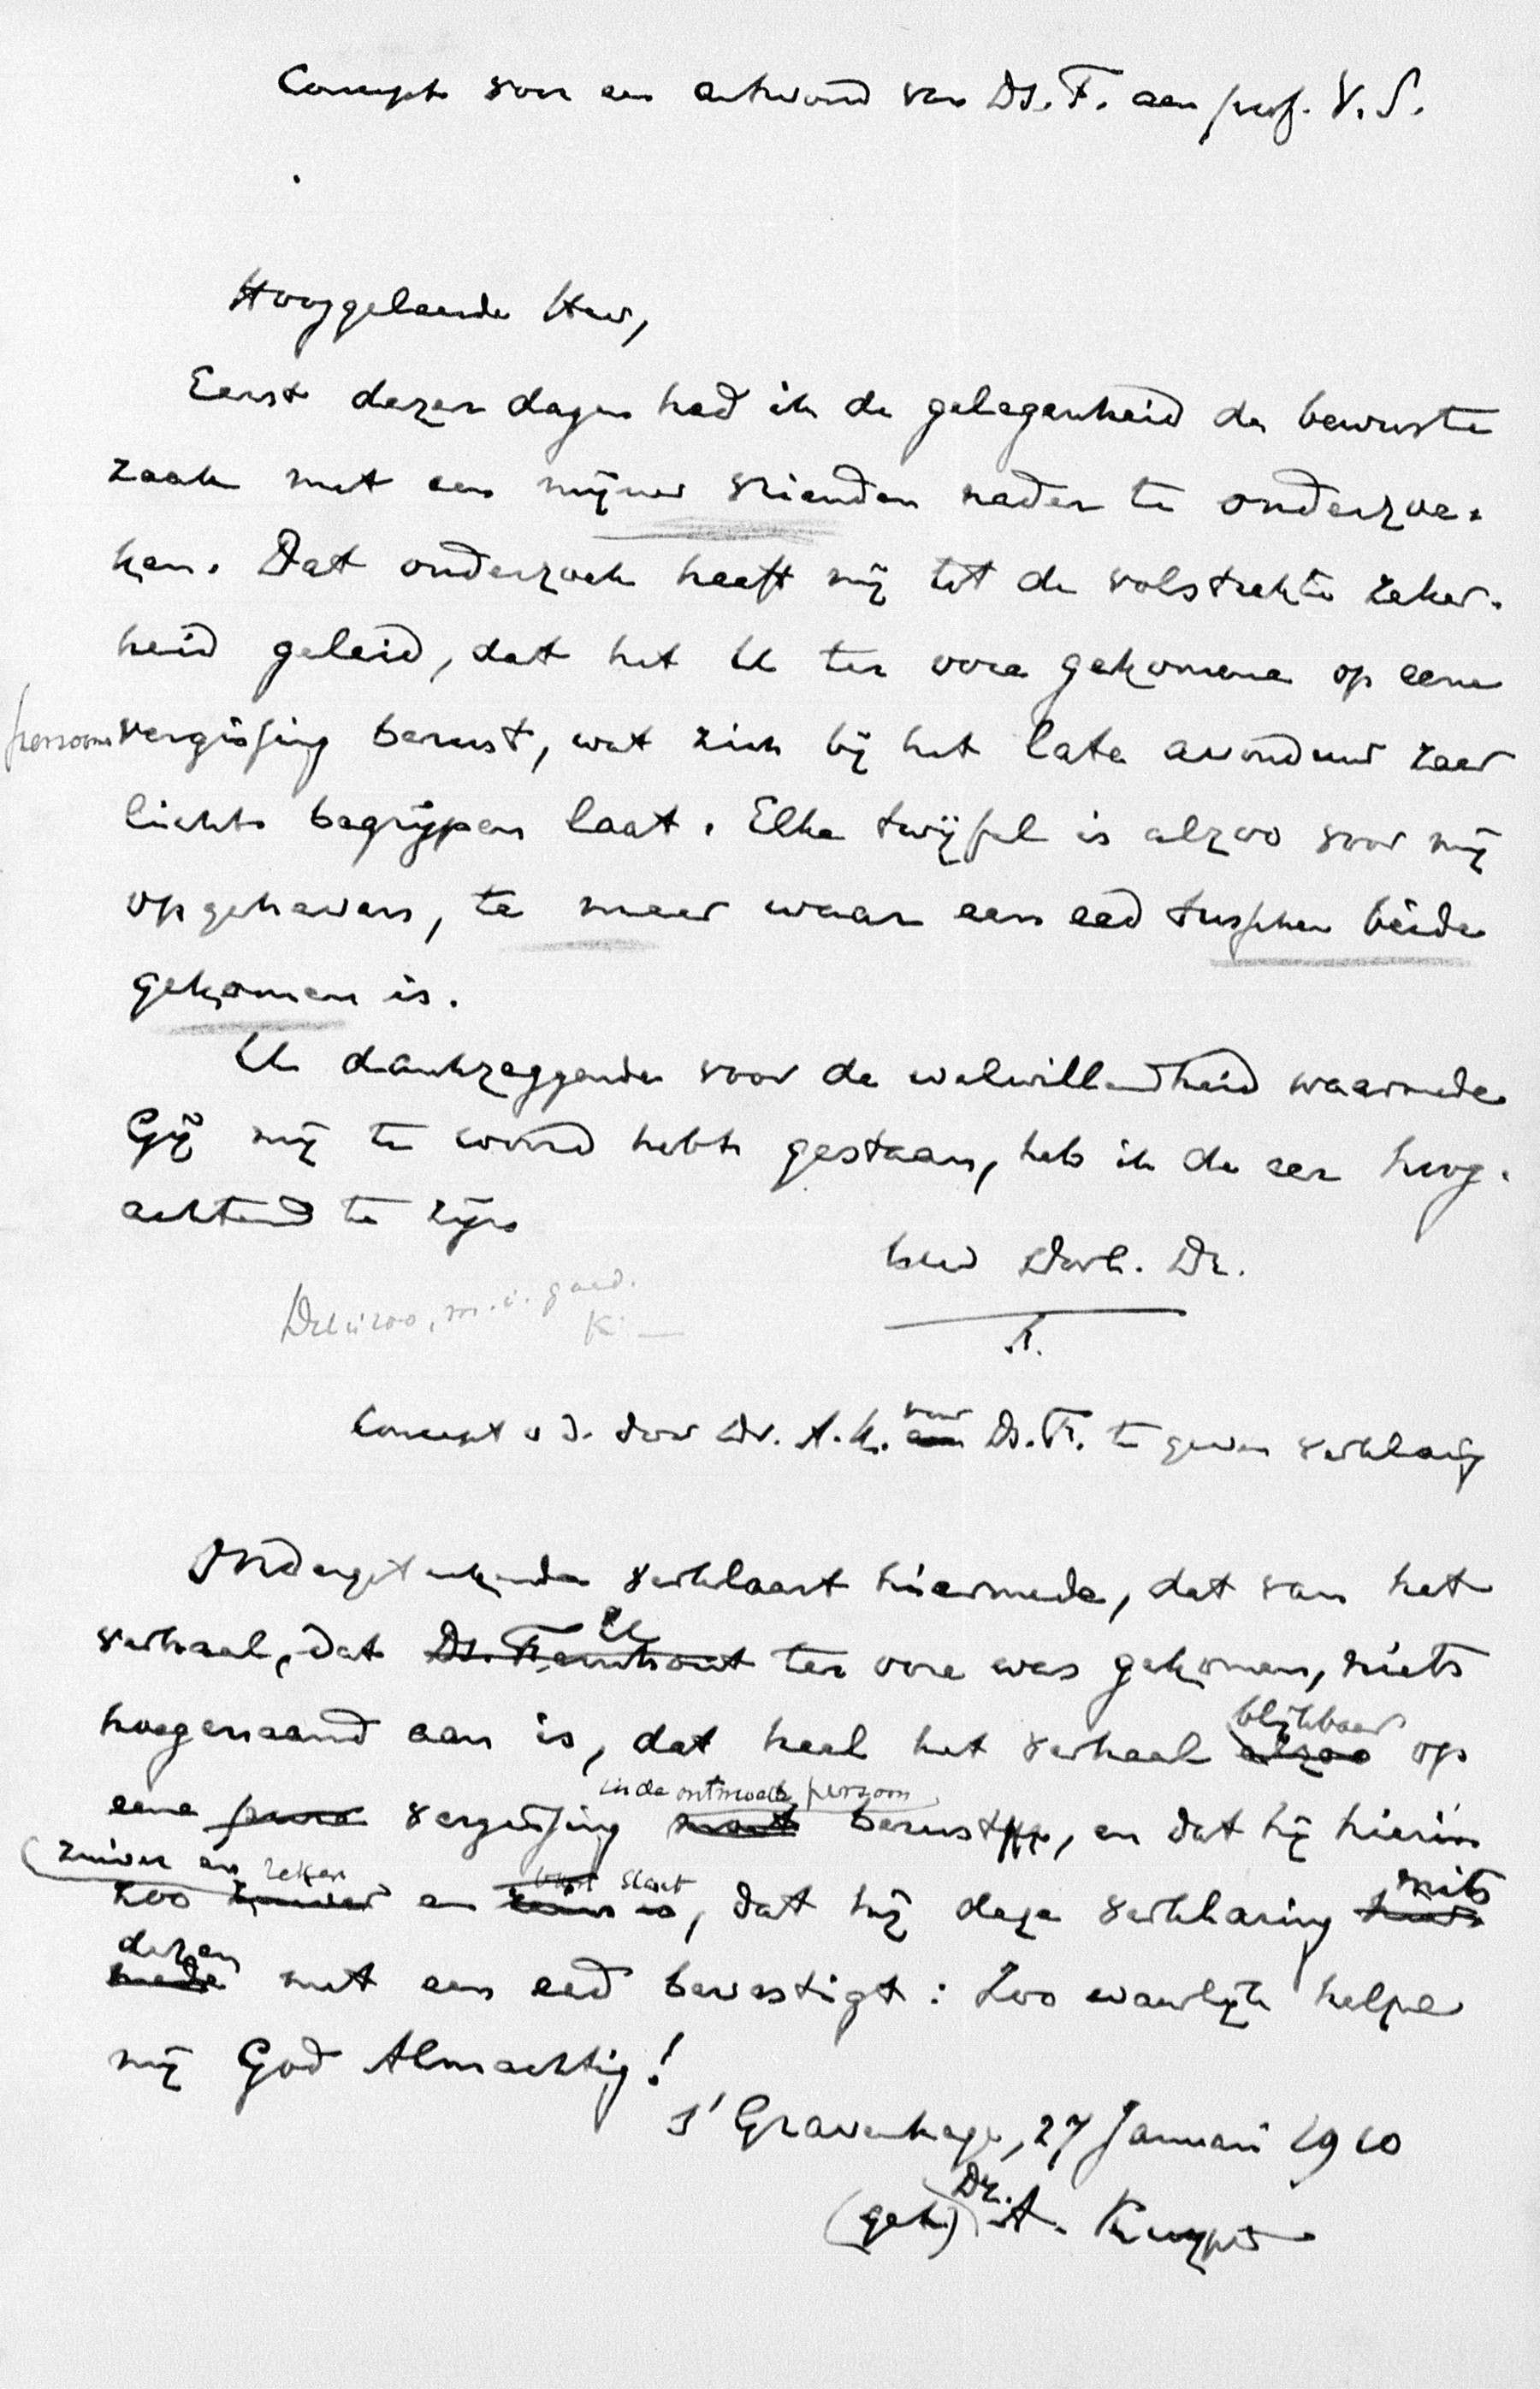 Concept voor een antwoord van Ds. F. aan prof. V. S.
Hooggeleerde Heer,
Eerst dezer dagen had ik de gelegenheid de bewuste
zaak met een mijner vrienden nader te onderzoe-
ken. Dat onderzoek heeft mij tot de volstrekte zeker-
heid geleid, dat het U ter oore gekomene op eene
persoons vergissing berust, wat zich bij het late avonduur zeer
licht begrijpen laat. Elke twijfel is alzoo voor mij
opgeheven, te meer waar een eed tusschen beide
gekomen is.
U dankzeggende voor de welwillendheid waarmede
Gij mij te woord hebt gestaan, heb ik de eer hoog-
achtend te zijn
Uw Dw. Dr.
F.
Dit is zoo, m.i. goed.
K.
Concept v d. door Dr. A. K. aan voor Ds. F. te geven verklaring
Ondergeteekende verklaart hiermede, dat van het
verhaal, dat Ds. Fernhout U ter oore was gekomen, niets
hoegenaamd aan is, dat heel het verhaal alzoo blijkbaar op
eene pure vergissing in de ontmoete persoon berust, en dat hij hierin
zuiver en zeker
zoo zuiver en staat, dat hij deze verklaring mits
dezen
mede met een eed bevestigt: Zoo waarlijk helpe
mij God Almachtig!
s' Gravenhage, 27 Januari 1910
(get.) Dr. A. Kuyper